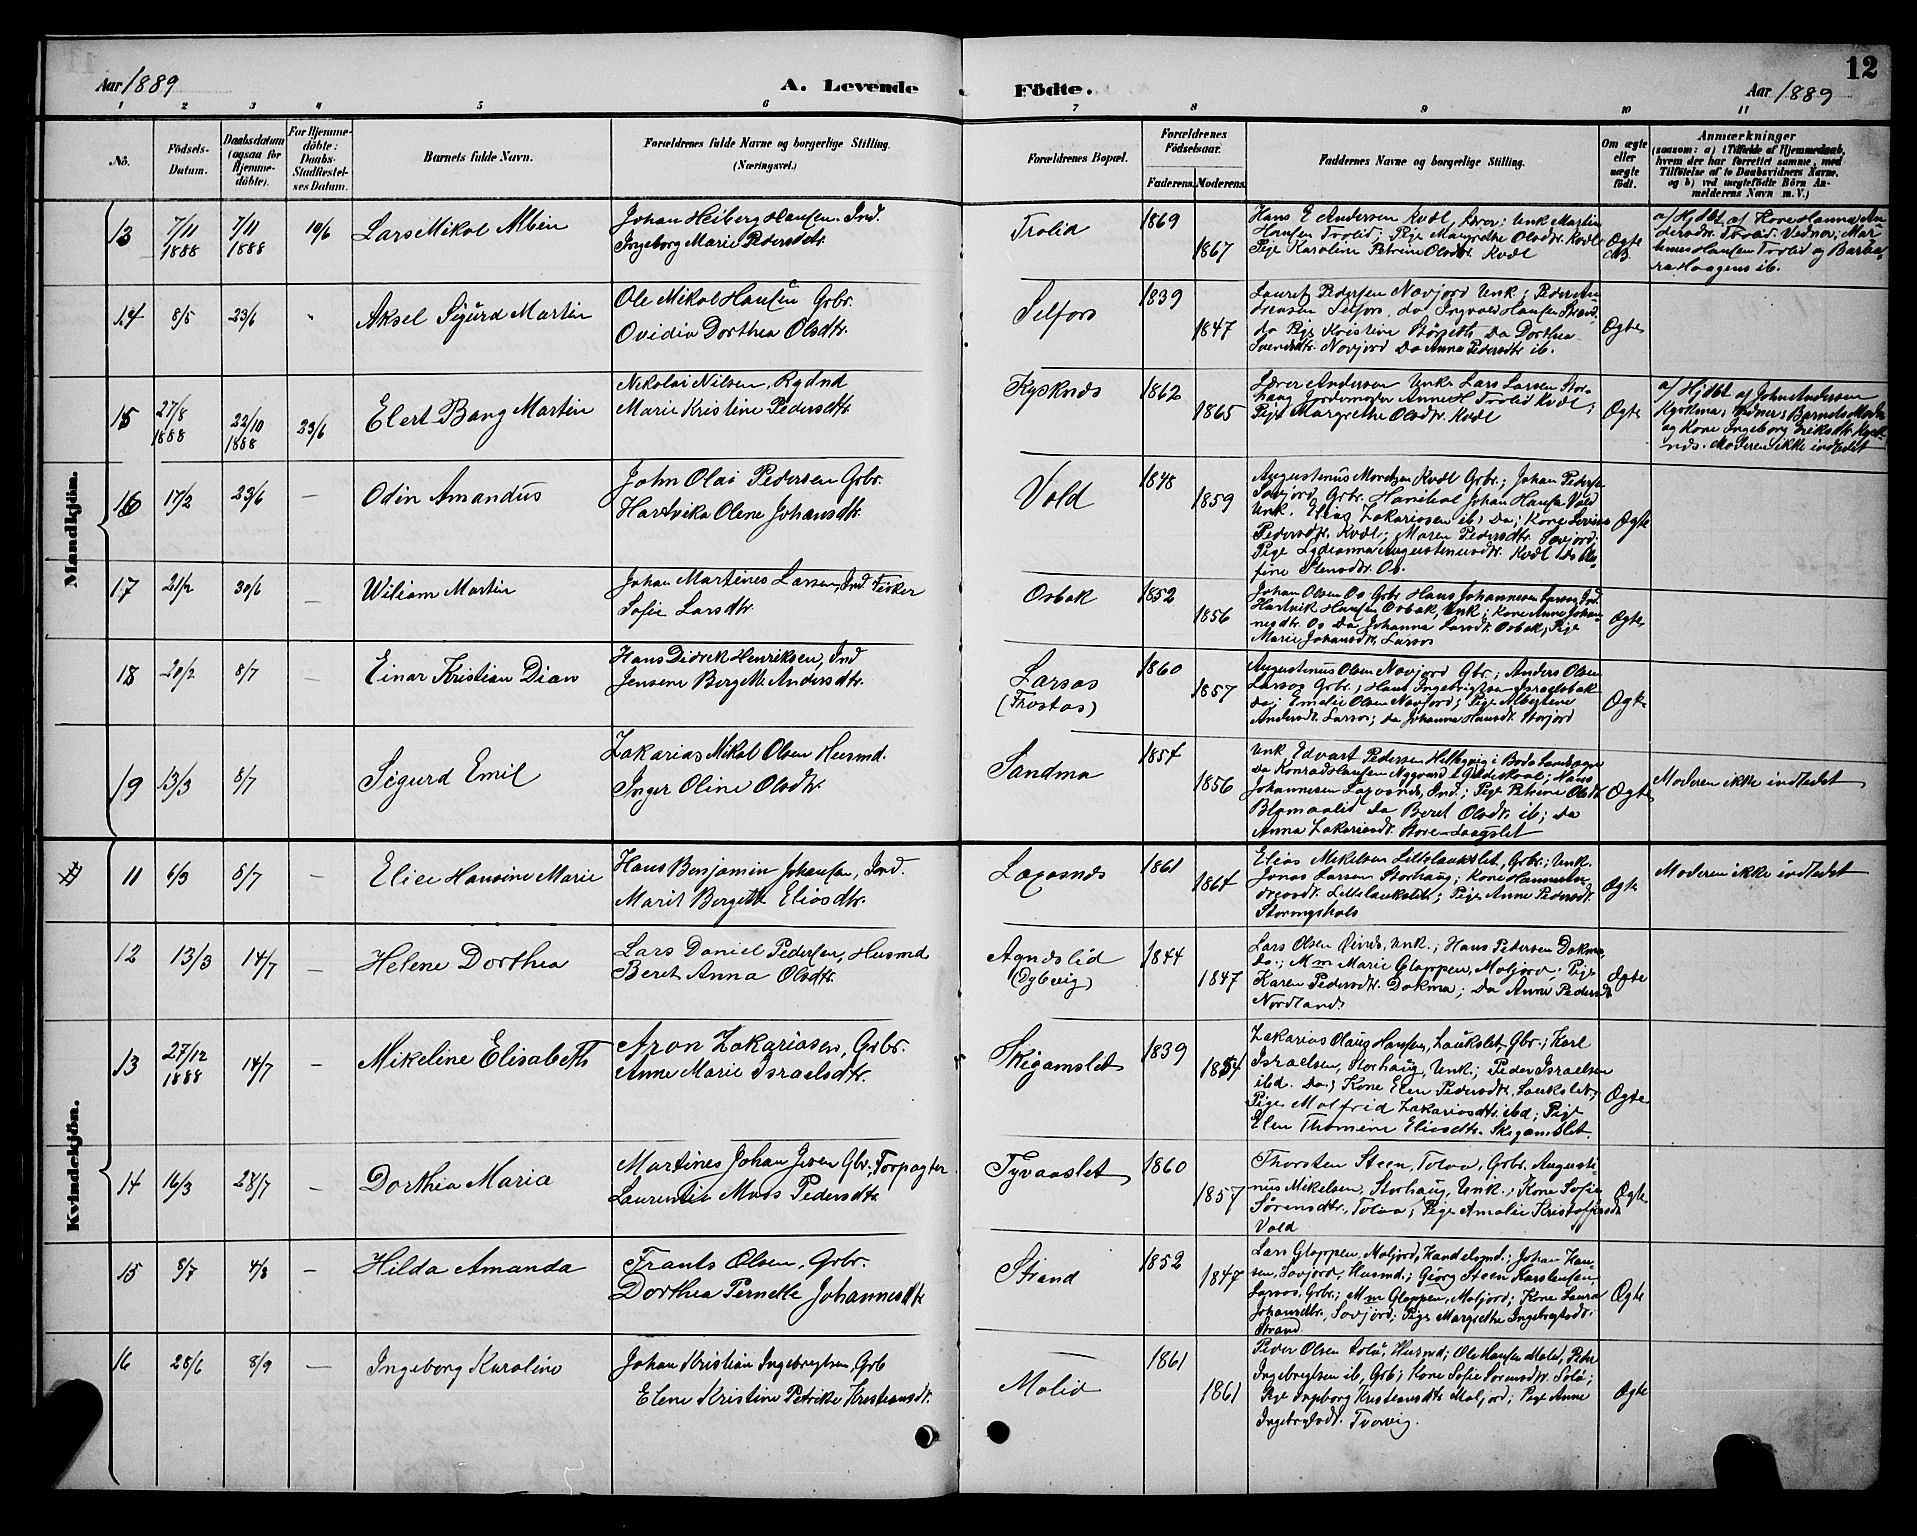 12
Aar 1889
A. Levende Födte.
Aar 1889
1 2 3 4 5 6 7 8 9 10 11
No.
Födsels-Datum.
Daabsdatum (ogsaa for Hjemme-döbte).
For Hjemme-döbte: Daabs-Stadfæstel-ses Datum.
Barnets fulde Navn.
Forældrenes fulde Navne og borgerlige Stilling.
(Næringsvei.)
Forældrenes Bopæl.
Forældrenes Födselsaar.
Faderens. Moderens.
Faddernes Navne og borgerlige Stilling.
Om ægte eller uægte födt.
Anmærkninger
(saasom: a) i Tilfælde af Hjemmedaab,
hvem der har forrettet samme, med
Tilföielse af to Daabsvidners Navne.
og b) ved uægtefödte Börn An-
melderens Navn m. V.)
Mandkjön.
13 7/11 1888 7/11 1888 10/6 Lars Mikal Albin
Johan Heiberg Hansen Ind.
Ingeborg Marie Pedersdtr.
Trolid 1869 1867
Hans E Andersen Kvdl, Lærer; Unk Martin
Hansen Trolid; Pige Margrethe Olsdtr. Kvdl
Pige Karoline Petrine Olsdtr. Kvdl
Ægte
a/ Hjdbt af Kone Hanna An
dersdtr. Trolid. Vidner: Mar
tines Hansen Trolid og Barba
ra Haagens ib.
14 8/5 23/6 Aksel Sigurd Martin
Ole Mikal Hansen Gbr.
Ovidia Dorthea Olsdtr.
Selfors 1839 1847
Lauretz Pedersen Novjord Unk; Peder An
dreasen Selfors, do Ingvald Hansen Strand
do Pige Kristine do Dorthea
Novjord Do Anna Pedersdtr ib.
Ægte
15 27/8 1888 22/10 1888 23/6 Elert Bang Martin
Nikolai Nilsen, Rydnd
Marie Kristine Pedersdtr
Kysknæs 1862 1865
Lærer Andersen Unk Lars Larsen Stor-
haug Jordemoder Anne H Trolid Kvdl;
Pige Margrethe Olsdtr. Kvdl
Ægte
a/ Hjdbt af John Andersen
Vidner: Barnets Moder
og Kone Ingeborg Eriksdtr Kysk
næs. Moderen ikke indledet
16 17/2 23/6 — Odin Amandus
John Olai Pedersen Gbr.
Hartvika Olene Johansdtr.
Vold 1848 1859
Augustinus Mordsen Kvdl Gbr.; Johan Peders
Sovjord Gbr. Hanibal Johan Hansen Vold
Unk. Elias Zakariasen ib; Da; Kone
Pedersdtr. Kvdl; Maren Pedersdtr. Sovjord;
Pige Lydianna Augustinusdtr. Kvdl Do
fine Stensdtr. Os.
Ægte
17 21/2 30/6 — Wiliam Martin
Johan Martines Larsen, Ind. Fisker
Sofie Larsdtr
Osbak 1852 1856
Johan Olsen Os Gbr Hans Johannesen Larsos Ind.
Hartvik Hansen Osbak, Unk; Kone Anne Johan-
nesdtr. Os Da Johanna Larsdtr Osbak, Pige
Marie Johansdtr. Larsos
Ægte
18 20/2 8/7 Einar Kristian Dian
Hans Didrek Henriksen, Ind
Jensine Bergette Andersdtr.
Larsos
(Frostos)
1860 1857
Augustinus Olsen Novjord Gbr; Anders Olsen
Larsos Gbr; Hans Ingebrigtsen Israelsbak
do; Emelie Olsen Novjord; Pige Albertine
Andersdt. Larsos; da Johanna Hansdt. Storjord
Ægte
19 13/3 8/7 Sigurd Emil
Zakarias Mikal Olsen Husmd.
Inger Oline Olsdtr.
Sandmo 1854 1856
Unk Edvart Pedersen i Bodø Landsogn
Da Konrad Hansen Nygaard i Gildeskaal; Hans
Johannesen Laxosnæs, Ind.; Pige Petrine Olsdt.
Blomaalid da Beret Olsdtr. ib; da
Anna Zakariasdt. Store-Laagslet
Ægte
Moderen ikke indledet
Kvindekjön.
11 6/3 8/7 — Elise Hansine Marie
Hans Benjamin Johansen, Ind.
Marit Bergette Eliasdtr.
Laxosnæs 1861 1864
Elias Mikelsen Lillelaukslet, Gbr; Unk.
Jonas Larsen Storhaug; Kone Hanna An
dreasdt. Lillelaukslet; Pige Anne Pedersdt.
Ægte
Moderen ikke indledet
12 13/3 14/7 — Helene Dorthea
Lars Daniel Pedersen, Husmd
Beret Anna Olsdtr.
Agnæslid
(Dybvig)
1844 1847
Lars Olsen Unk.; Hans Pedersen Dokmo,
do.; Mm Marie Gloppen, Moljord; Pige
Karen Pedersdtr. Dokmo; Da Anne Pedersdt.
Nordland
Ægte
13 27/12 1888 14/7 — Mikeline Elisabeth
Aron Zakariasen, Gbr.
Anne Marie Israelsdtr.
Skigamslet 1839 1854
Zakarias Olaus Hansen, Laukslet, Gbr.; Karl
Israelsen, Storhaug, Unk.; Peder Israelsen
ibd. Da.; Kone Elen Pedersdtr. Laukslet;
Pige Malfrid Zakariasdtr. ibd; Pige
Elen Thomine Eliasdtr. Skigamslet.
Ægte
14 16/3 28/7 — Dorthea Maria
Martines Johan Jven Gbr. Forpagter
Laurentie Moos Pedersdtr
Tyvaaslet 1860 1857
Thorsten Steen, Tolaa, Gbr. Augusti-
nus Mikelsen, Storhaug, Unk.; Kone Sofie
Sørensdtr., Tolaa; Pige Amalie Kristoffersdt
Vold
Ægte
15 8/7 4/8 — Hilda Amanda
Frants Olsen, Gbr.
Dorthea Pernelle Johannesdtr
Strand 1852 1847
Lars Gloppen, Moljord, Handelsmd.; Johan Han-
sen, Sovjord, Husmd.; Georg Steen Karstensen
Larsos, Gbr.; Mm Gloppen, Moljord; Kone Laura
Johansdtr., Sovjord; Pige Margrethe Ingebrigtsdt.
Strand
Ægte
16 28/6 8/9 — Ingeborg Karoline
Johan Kristian Ingebrigtsen, Gb
Elene Kristine Petrikke Kristiansdt.
Molid 1861 1861
Peder Olsen Solø, Husmd; Ole Hansen Molid, Peter
Ingebrigtsen ib, Gb; Kone Sofie Sørensdt. Solø;
Pige Ingeborg Kristiansdtr Moljord; Pige Anne
Ingebrigtsdt. Tvervig.
Ægte